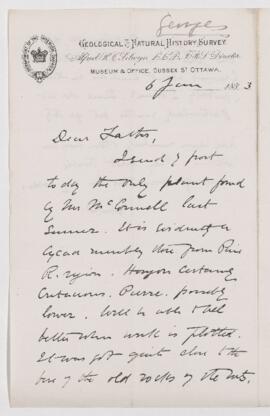 George
GEOLOGICAL & NATURAL HISTORY SURVEY
Alfred R. C. Selwyn, L.L.D., F.R.S. Director.
MUSEUM & OFFICE, SUSSEX ST OTTAWA.
6 Jan 1883
Dear Father,
I send by post
today the only plant found
by Mr McConnell last
Summer. It is evidently a
Cycad much like those from Pine
R. region. Horizon certainly
Cretaceous. Pierre. possibly
lower. Will be able to tell
better when work is plotted.
It was got quite close to the
base of the old rocks of the Mts.